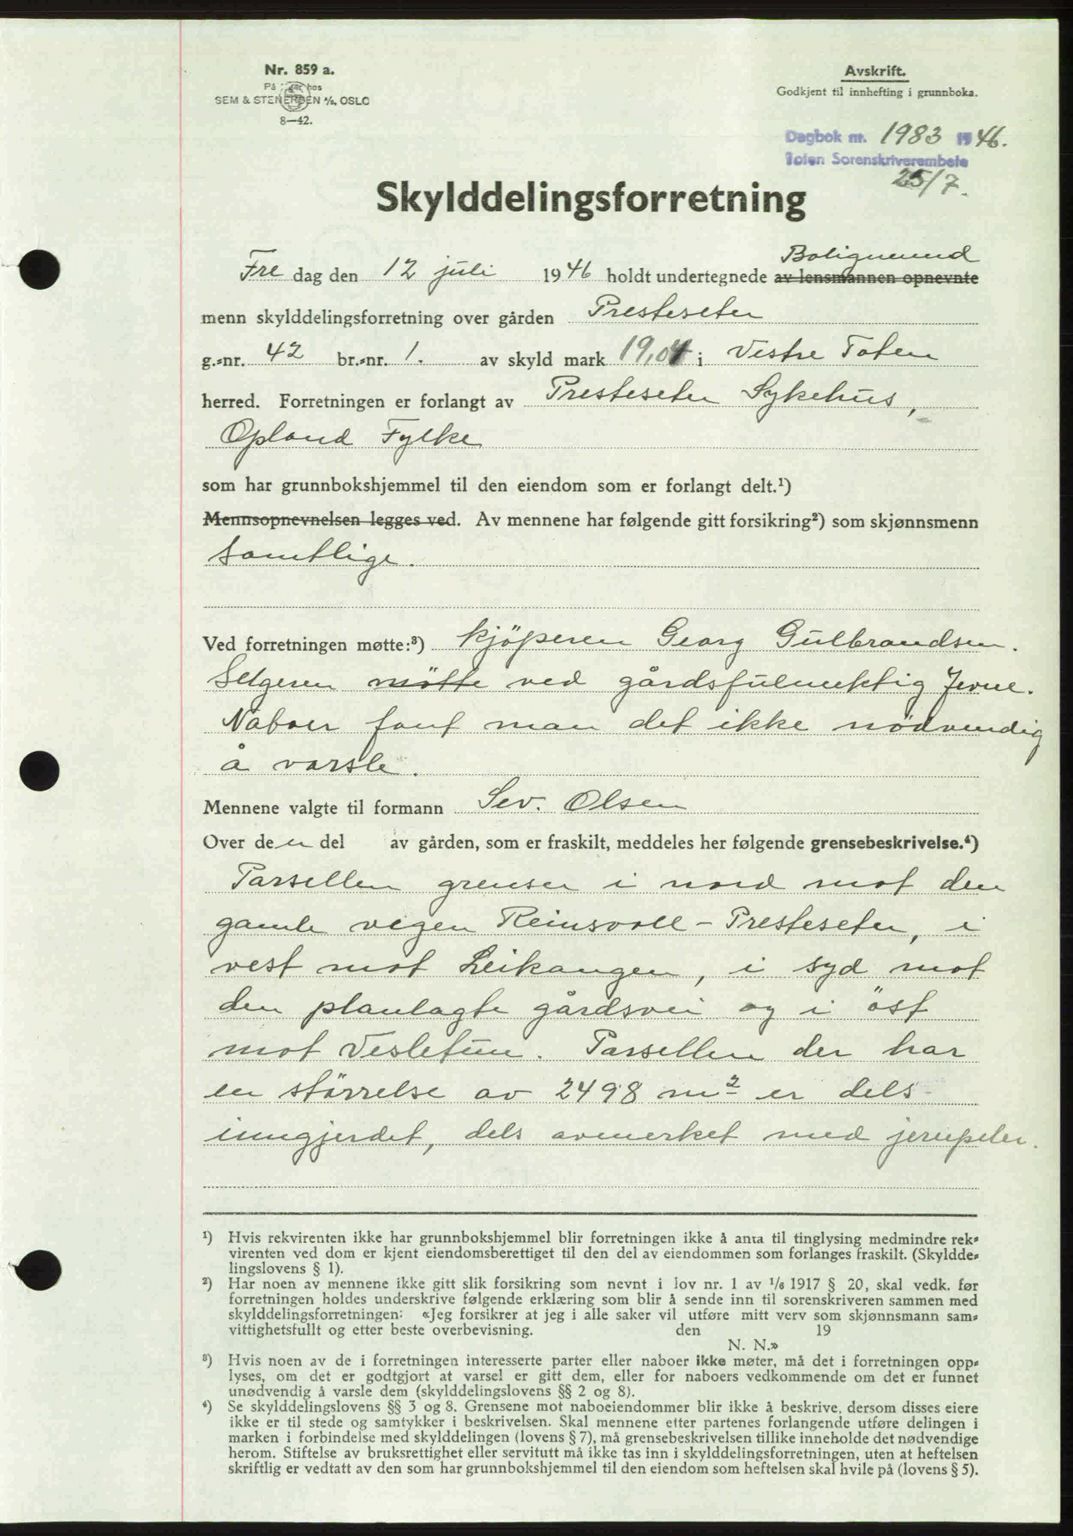 Nr. 859 a.
På lager hos
SEM & STENERSEN A/S, OSLO
8—42.
Avskrift.
Godkjent til innhefting i grunnboka.
Dagbok nr. 1983 1946.
Toten Sorenskriverembete
25/7.
Skylddelingsforretning
Boligmend
Fre dag den 12 juli 1946 holdt undertegnede av lensmannen opnevnte
menn skylddelingsforretning over gården Presteseter
g.-nr. 42 br.-nr. 1. av skyld mark 19,04 i Vestre Toten
herred. Forretningen er forlangt av Presteseter Sykehus,
Opland Fylke
som har grunnbokshjemmel til den eiendom som er forlangt delt.¹)
Mennsopnevnelsen legges ved. Av mennene har følgende gitt forsikring²) som skjønnsmenn
Samtlige.
Ved forretningen møtte:³) kjöperen Georg Gulbrandsen.
Selgeren mötte ved gårdsfulmektig
Naboer fant man det ikke nödvendig
å varsle.
Mennene valgte til formann Sev. Olsen
Over den del av gården, som er fraskilt, meddeles her følgende grensebeskrivelse.⁴)
Parsellen grenser i nord mot den
gamle vegen Reinsvoll - Presteseter, i
vest mot Leikangen, i syd mot
den planlagte gårdsvei og i öst
mot Vesletun. Parsellen der har
en störrelse av 2498 m² er dels
inngjerdet, dels avmerket med jernpeler.
¹) Hvis rekvirenten ikke har grunnbokshjemmel blir forretningen ikke å anta til tinglysing medmindre rek-
virenten ved dom er kjent eiendomsberettiget til den del av eiendommen som forlanges fraskilt. (Skyldde-
lingslovens § 1).
²) Har noen av mennene ikke gitt slik forsikring som nevnt i lov nr. 1 av 1/6 1917 § 20, skal vedk. før
forretningen holdes underskrive følgende erklæring som blir å sende inn til sorenskriveren sammen med
skylddelingsforretningen: «Jeg forsikrer at jeg i alle saker vil utføre mitt verv som skjønnsmann sam-
vittighetsfullt og etter beste overbevisning. den 19
N. N.»
³) Hvis noen av de i forretningen interesserte parter eller naboer ikke møter, må det i forretningen opp-
lyses, om det er godtgjort at varsel er gitt dem, eller for naboers vedkommende om det er funnet
unødvendig å varsle dem (skylddelingslovens §§ 2 og 8).
⁴) Se skylddelingslovens §§ 3 og 8. Grensene mot naboeiendommer blir ikke å beskrive, dersom disses eiere
ikke er til stede og samtykker i beskrivelsen. Skal mennene etter partenes forlangende utføre delingen i
marken i forbindelse med skylddelingen (lovens § 7), må grensebeskrivelsen tillike inneholde det nødvendige
herom. Stiftelse av bruksrettighet eller servitutt må ikke tas inn i skylddelingsforretningen, uten at heftelsen
skriftlig er vedtatt av den som har grunnbokshjemmel til den eiendom som heftelsen skal hvile på (lovens § 5).